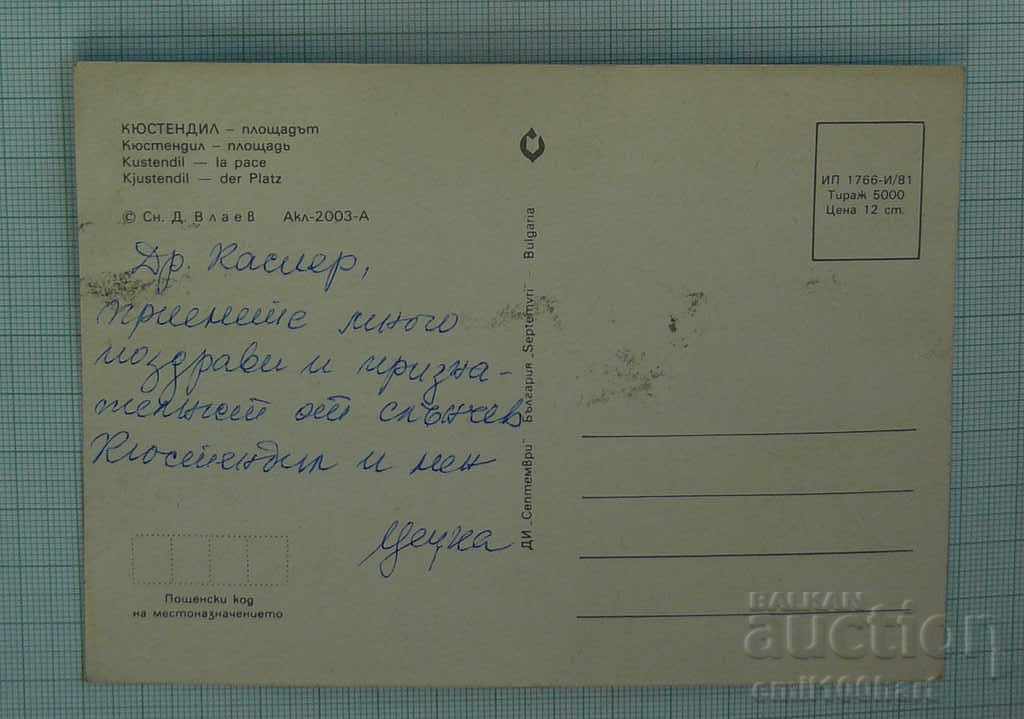 КЮСТЕНДИЛ – площадът
Кюстендил – площадь
Kustendil — la pace
Kjustendil — der Platz
© Сн. Д. Влаев Акл-2003-А
Др. Каслер,
приемете много
поздрави и призна-
телност от слънчев
Кюстендил и мен
Цецка
Пощенски код
на местоназначението
ДИ „Септември" България „Septemvri" Bulgaria
ИП 1766-И/81
Тираж 5000
Цена 12 ст.
BALKAN
auction
emil100hart